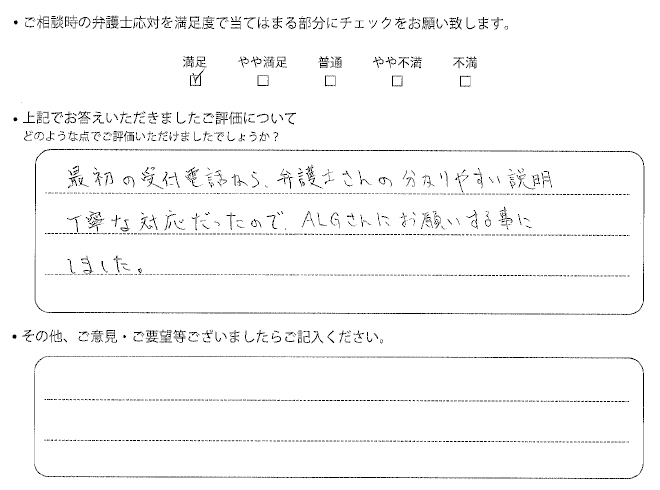 ・ご相談時の弁護士応対を満足度で当てはまる部分にチェックをお願い致します。
満足 やや満足 普通 やや不満 不満
・上記でお答えいただきましたご評価について
どのような点でご評価いただけましたでしょうか？
最初の受付電話から、弁護士さんの分かりやすい説明
丁寧な対応だったので、ALGさんにお願いする事に
しました。
・その他、ご意見・ご要望等ございましたらご記入ください。